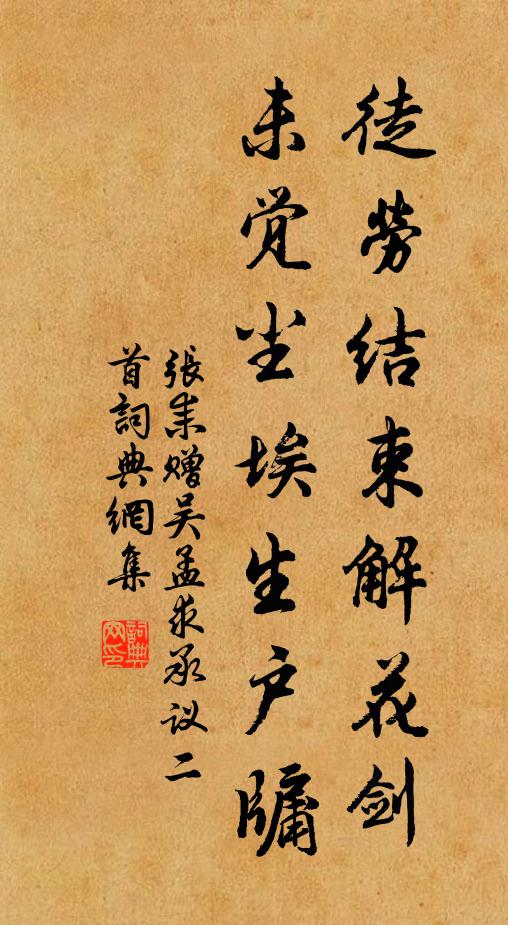 徒劳结束解花剑
未觉尘埃生户牖
張耒赠吴孟求承议二
首詞典網集
詞典
网印